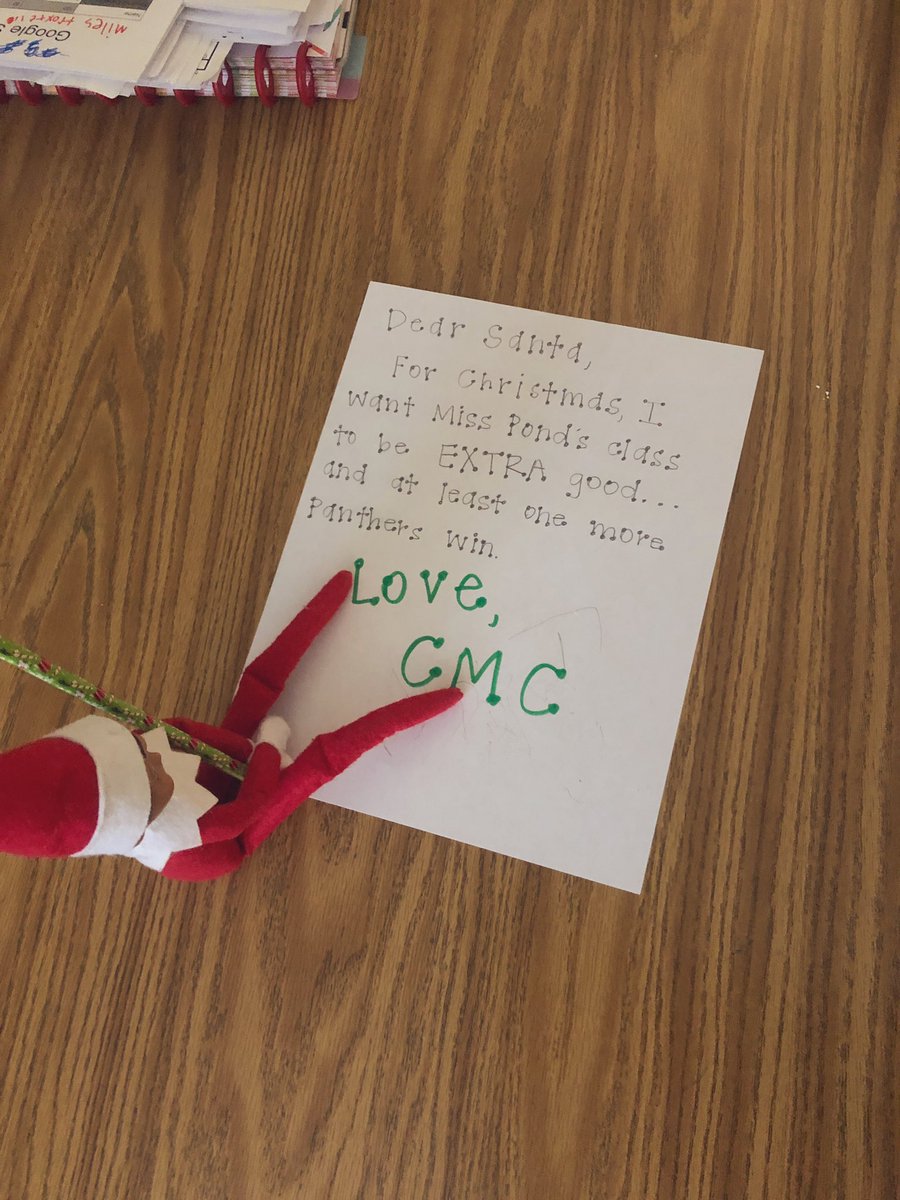 Dear Santa,
For Christmas, I
want Miss Pond's class
to be EXTRA good...
and at least one more
Panthers win.
Love,
CMC
Google S
Miles